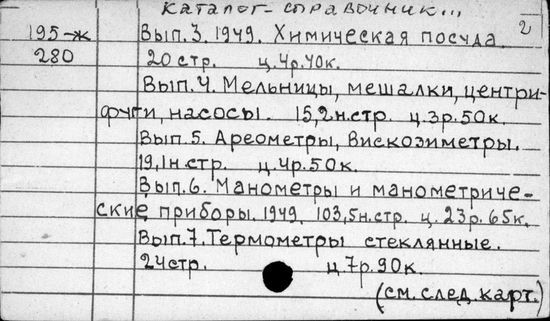 каталог-справочник... 2
195-ж Вып.3. 1949. Химическая посуда.
280 20 стр. ц.4р.40к.
Вып.4. Мельницы, мешалки, центри-
фуги, насосы. 15,2н.стр. ц.3р.50к.
Вып.5. Ареометры, Вискозиметры.
19,1н.стр. ц.4р.50к.
Вып.6. Манометры и манометриче-
ские приборы. 1949. 103,5н.стр. ц.23р.65к.
Вып.7. Термометры стеклянные.
24стр. ц.7р.90к.
(см. след.карт.)